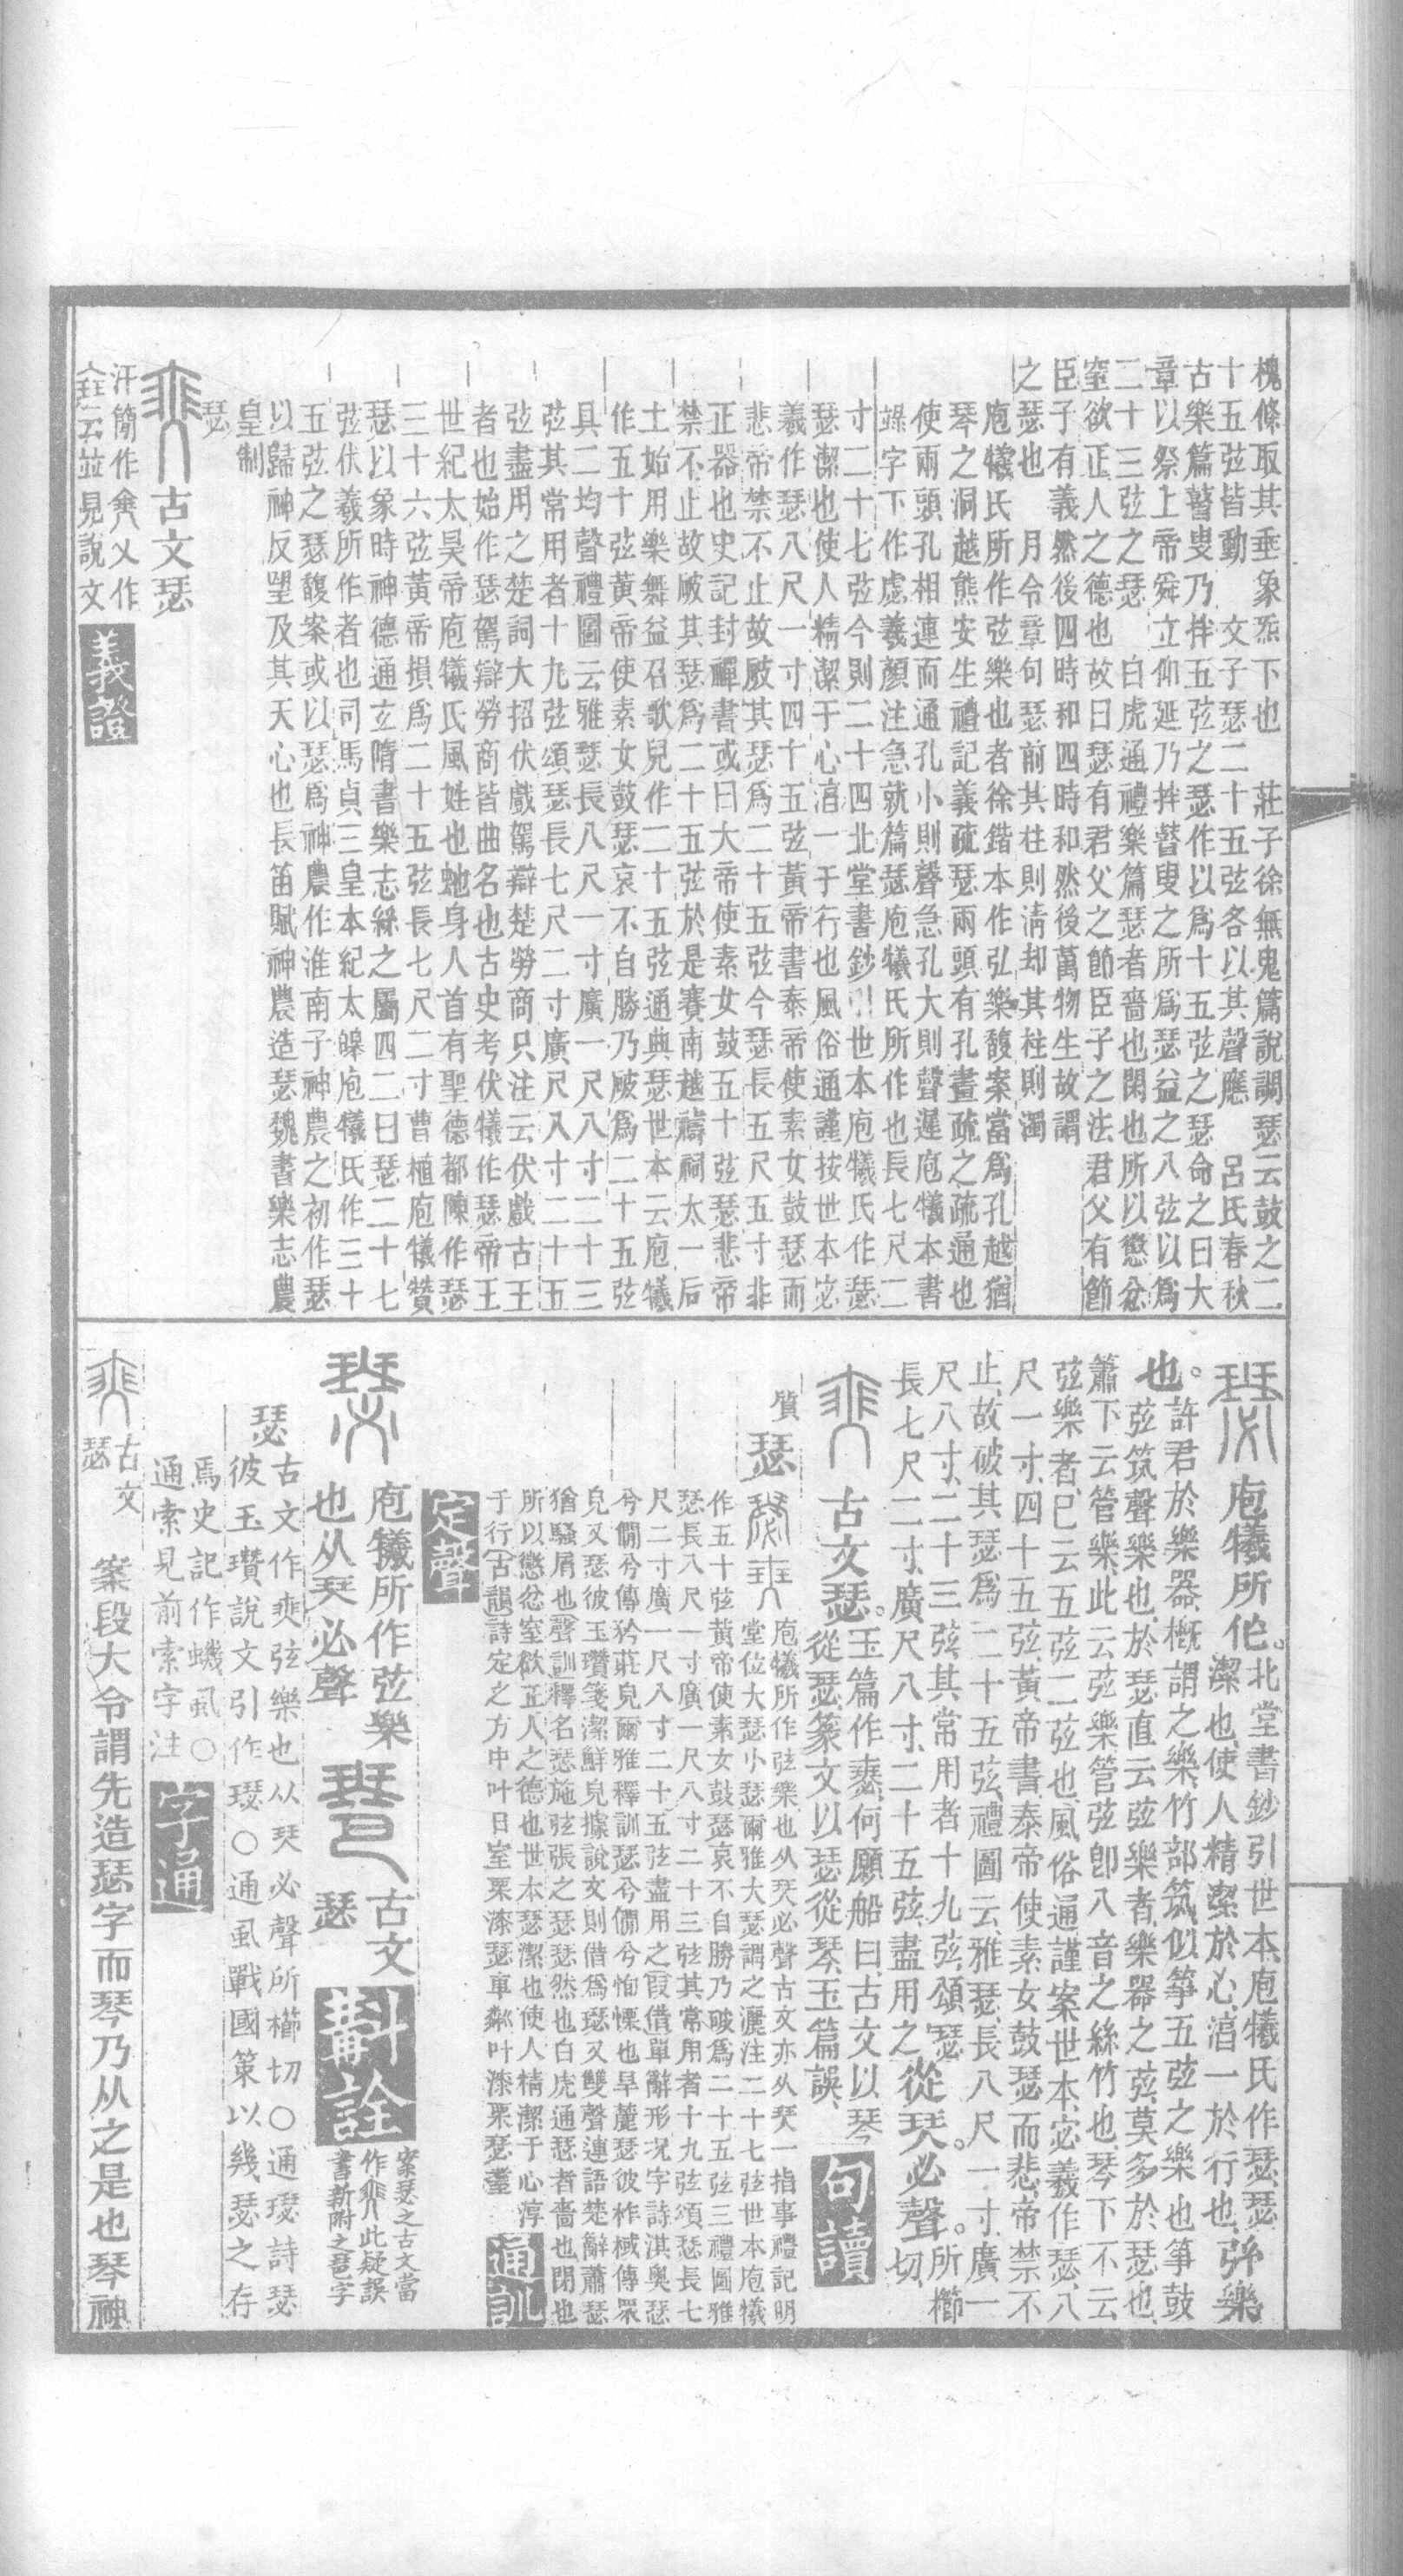 槐條取其垂象炁下也　莊子徐無鬼篇說調瑟云鼓之二
十五弦皆動　文子瑟二十五弦各以其聲應　呂氏春秋
古樂篇瞽叟乃拌五弦之瑟作以爲十五弦之瑟命之曰大
章以祭上帝舜立仰延乃拌瞽叟之所爲瑟益之八弦以爲
二十三弦之瑟　白虎通禮樂篇瑟者嗇也閑也所以懲忿
窒欲正人之德也故曰瑟有君父之節臣子之法君父有節
臣子有義然後四時和四時和然後萬物生故謂
之瑟也　月令章句瑟前其柱則清却其柱則濁
庖犧氏所作弦樂也者徐鍇本作弘樂馥案當爲孔越猶
琴之洞越熊安生禮記義疏瑟兩頭有孔晝疏之疏通也
使兩頭孔相連而通孔小則聲急孔大則聲遲庖犧本書
竦字下作虙羲顏注急就篇瑟庖犧氏所作也長七尺二
寸二十七弦今則二十四北堂書鈔引世本庖犧氏作瑟
瑟潔也使人精潔于心淯一于行也風俗通謹按世本宓
義作瑟八尺一寸四十五弦黃帝書泰帝使素女鼓瑟而
悲帝禁不止故破其瑟爲二十五弦今瑟長五尺五寸非
正器也史記封禪書或曰大帝使素女鼓五十弦瑟悲帝
禁不止故破其瑟爲二十五弦於是賽南越禱祠太一后
土始用樂舞益召歌兒作二十五弦通典瑟世本云庖犧
作五十弦黃帝使素女鼓瑟哀不自勝乃破爲二十五弦
具二均聲禮圖云雅瑟長八尺一寸廣一尺八寸二十三
弦其常用者十九弦頌瑟長七尺二寸廣尺八寸二十五
弦盡用之楚詞大招伏戲駕辯楚勞商只注云伏戲古王
者也始作瑟駕辯勞商皆曲名也古史考伏犧作瑟帝王
世紀太昊帝庖犧氏風姓也虵身人首有聖德都陳作瑟
三十六弦黃帝損爲二十五弦長七尺二寸曹植庖犧贊
瑟以象時神德通玄隋書樂志絲之屬四二曰瑟二十七
弦伏羲所作者也司馬貞三皇本紀太皞庖犧氏作三十
五弦之瑟馥案或以瑟爲神農作淮南子神農之初作瑟
以歸神反望及其天心也長笛賦神農造瑟魏書樂志農
皇制
瑟
古文瑟
汗簡作𡘽乂作
𡘽云並見說文
義證
庖犧所作北堂書鈔引世本庖犧氏作瑟瑟
潔也使人精潔於心淯一於行也弦樂
也。許君於樂器概謂之樂竹部筑似箏五弦之樂也箏鼓
弦筑聲樂也於瑟直云弦樂者樂器之弦莫多於瑟也
簫下云管樂此云弦樂管弦卽八音之絲竹也琴下不云
弦樂者已云五弦二弦也風俗通謹案世本宓義作瑟八
尺一寸四十五弦黃帝書泰帝使素女鼓瑟而悲帝禁不
止故破其瑟爲二十五弦禮圖云雅瑟長八尺一寸廣一
尺八寸二十三弦其常用者十九弦頌瑟
長七尺二寸廣尺八寸二十五弦盡用之從珡必聲。所櫛切
古文瑟。玉篇作𡘽何願船曰古文以琴
從瑟篆文以瑟從琴玉篇誤
句讀
質　瑟　庖犧所作弦樂也从珡必聲古文亦从珡一指事禮記明
堂位大瑟小瑟爾雅大瑟謂之灑注二十七弦世本庖犧
作五十弦黃帝使素女鼓瑟哀不自勝乃破爲二十五弦三禮圖雅
瑟長八尺一寸廣一尺八寸二十三弦其常用者十九弦頌瑟長七
尺二寸廣一尺八寸二十五弦盡用之叚借單辭形況字詩淇奧瑟
兮僩兮傳矜莊皃爾雅釋訓瑟兮僩兮恂慄也旱麓瑟彼柞棫傳眾
皃又瑟彼玉瓚箋潔鮮皃據說文則借爲璱又雙聲連語楚辭蕭瑟
猶騷屑也聲訓釋名瑟施弦張之瑟瑟然也白虎通瑟者嗇也閉也
所以懲忿窒欲正人之德也世本瑟潔也使人精潔于心淳
于行古韻詩定之方中叶日室栗漆瑟車鄰叶漆栗瑟耋
通訓
定聲
庖犧所作弦樂
也从珡必聲
古文
瑟
斠詮
案瑟之古文當
作𠆪此疑誤
書新附之琶字
瑟古文作𠆪弦樂也从珡必聲所櫛切○通璱詩瑟
彼玉瓚說文引作璱○通虱戰國策以幾瑟之存
焉史記作蟣虱○
通索見前索字注
字通
古文
瑟
案段大令謂先造瑟字而琴乃从之是也琴神